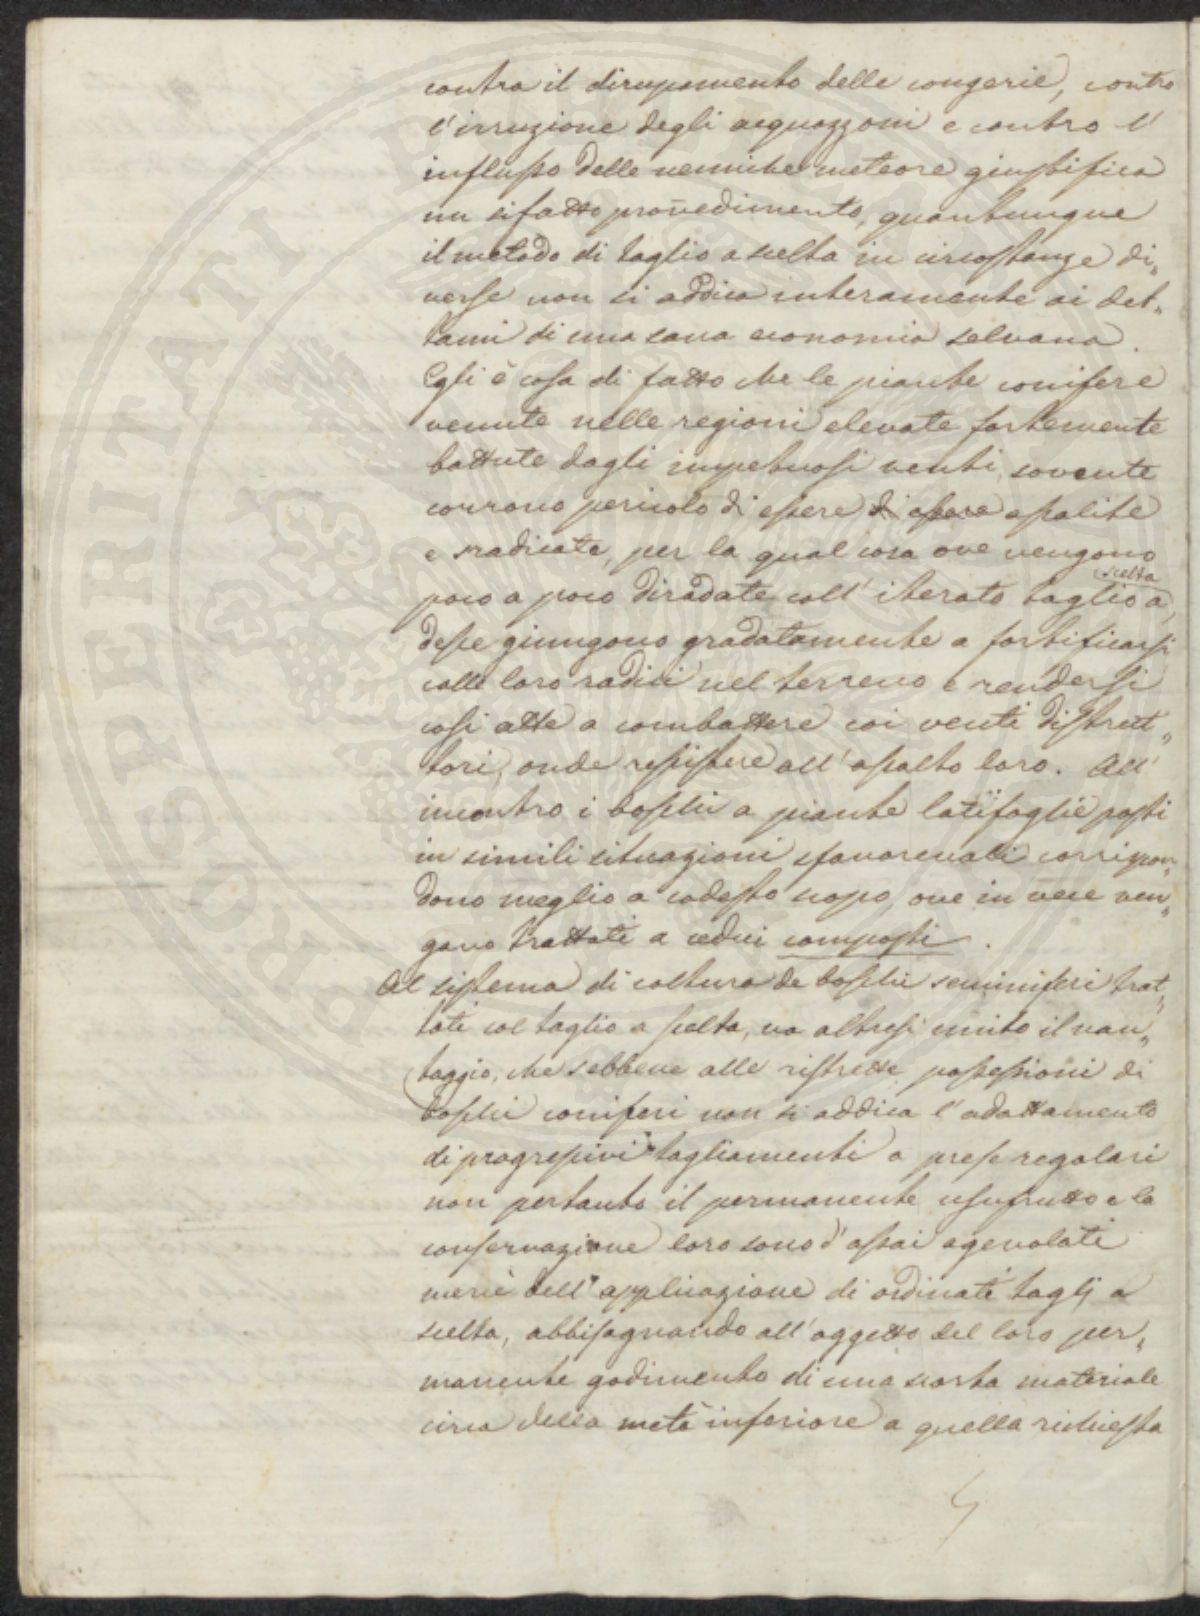 contro il dirupamento delle congerie, contro
l'irruzione degli acquazzoni e contro l'
influsso delle nemiche meteore giustifica
un sifatto provedimento, quantunque
il metodo di taglio a scelta in circostanze di„
verse non si addica interamente ai det„
tami di una sana economia selvana.
Egli è cosa di fatto che le piante conifere
venute nelle regioni elevate fortemente
battute dagli impetuosi venti, sovente
corrono pericolo di essere di essere assalite
e sradicate, per la qual cosa ove vengono
poco a poco diradate coll' iterato taglio a scelta,
desse giungono gradatamente a fortificarsi
colle loro radici nel terreno e rendersi
cosi atte a combattere coi venti distrut„
tori, onde resistere all' assalto loro. All'
incontro i boschi a piante latifoglie posti
in simili situazioni sfavorevoli corrispon„
dono meglio a codesto scopo, ove in vece ven„
gano trattati a cedui composti.
Al sistema di coltura de boschi seminiferi trat„
tati col taglio a scelta, va altresi unito il van„
taggio, che sebbene alle ristrette possessioni di
boschi coniferi non si addica l'adattamento
di progressivi tagliamenti a prese regolari
non pertanto il permanente usufrutto e la
conservazione loro sono d'assai agevolati
mercè dell' applicazione di ordinati taglj a
scelta, abbisognando all'oggetto del loro per„
manente godimento di una scorta materiale
circa della metà inferiore a quella richiesta
PROSPERITATI